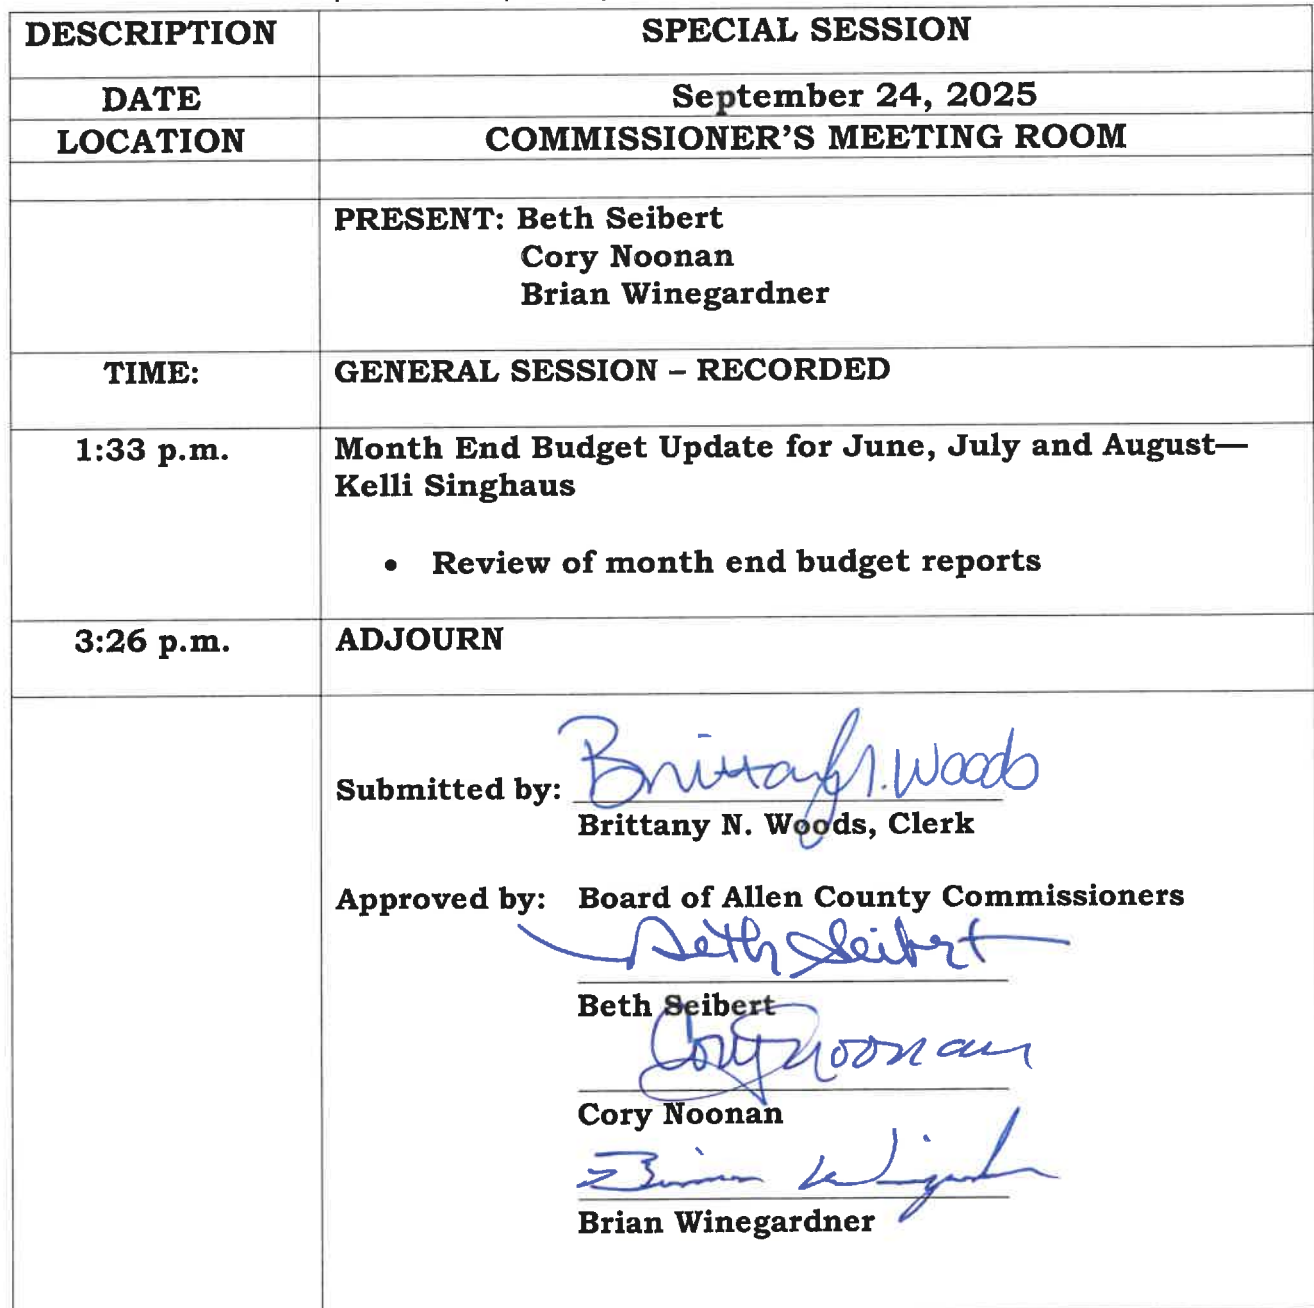 DESCRIPTION SPECIAL SESSION
DATE September 24, 2025
LOCATION COMMISSIONER'S MEETING ROOM
PRESENT: Beth Seibert
Cory Noonan
Brian Winegardner
TIME: GENERAL SESSION – RECORDED
1:33 p.m. Month End Budget Update for June, July and August—
Kelli Singhaus
• Review of month end budget reports
3:26 p.m. ADJOURN
Brittany N. Woods
Submitted by:
Brittany N. Woods, Clerk
Approved by: Board of Allen County Commissioners
Beth Seibert
Beth Seibert
Cory Noonan
Cory Noonan
Brian Winegardner